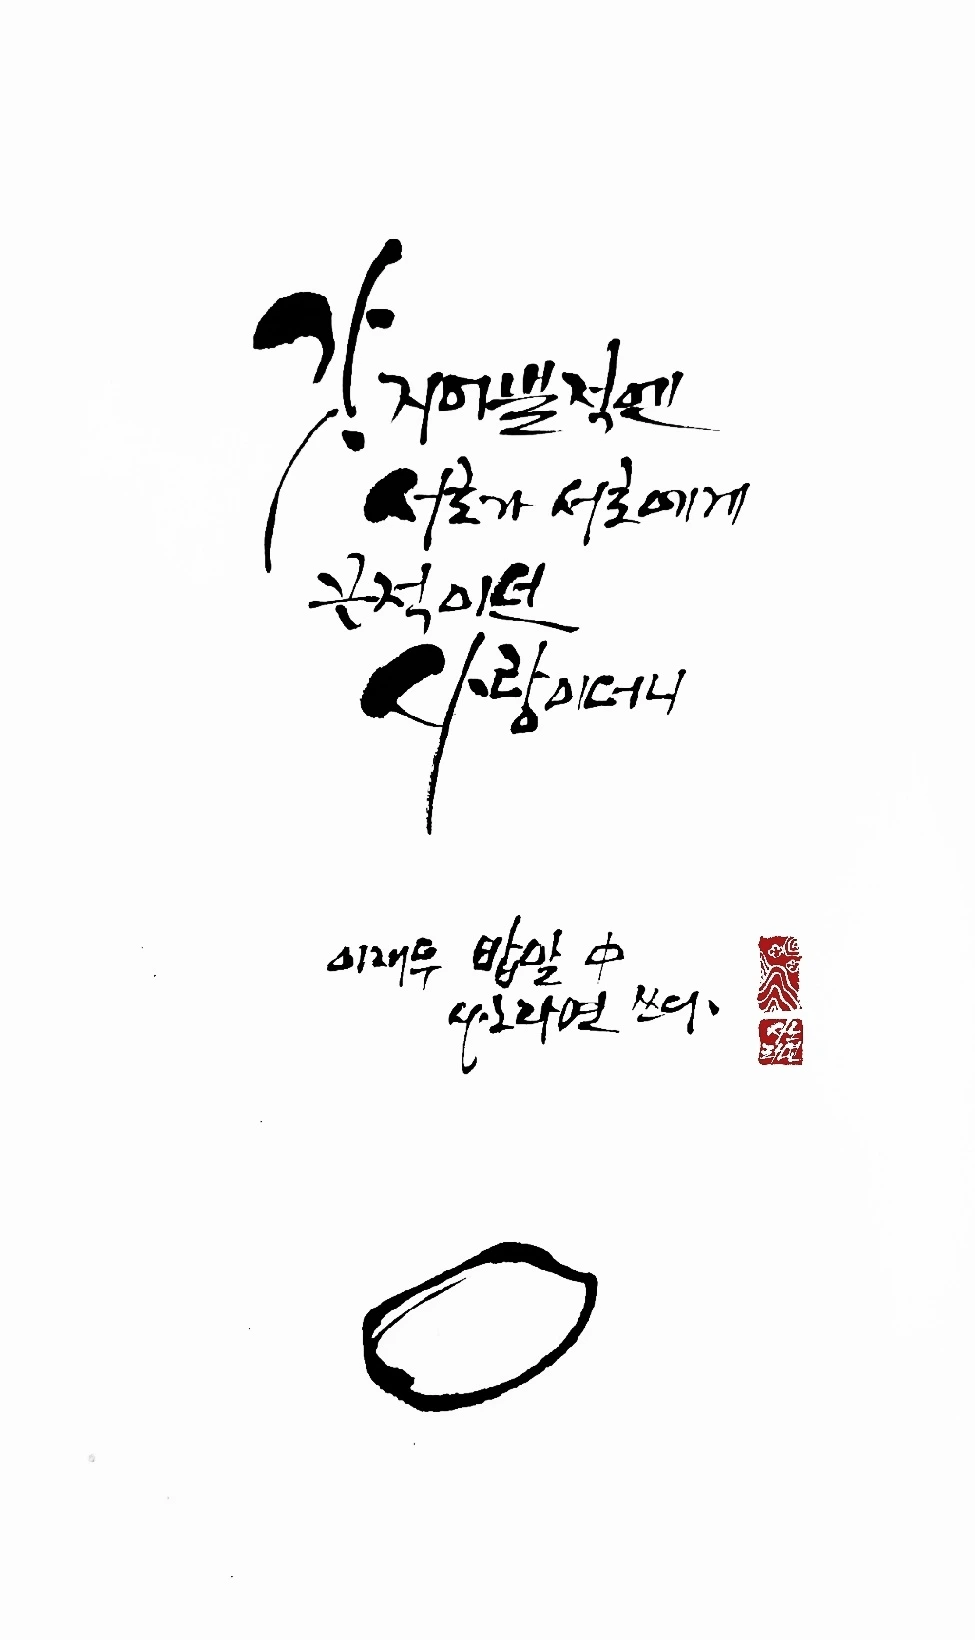 갓 지어낼적엔
서로가 서로에게
끈적이던
사랑이더니
이재무 밥알 中
사노라면 쓰다.
사노
라면